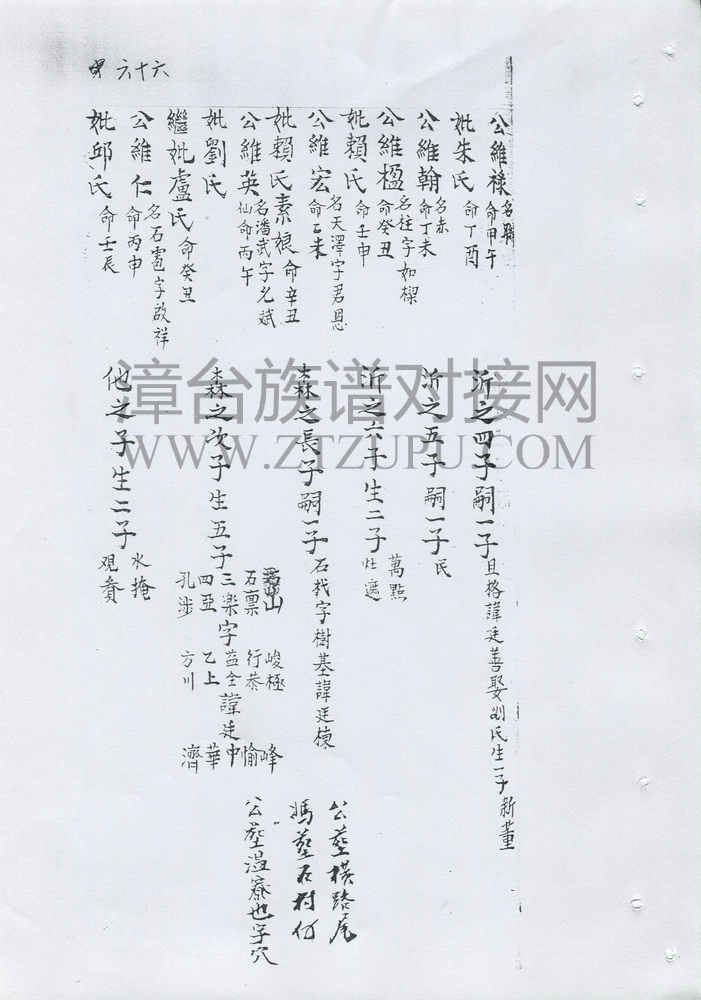 甲 六十六
公維祿 名 命甲午
沂之四子嗣一子 旦格諱廷善娶刘氏生一子新董
妣朱氏 命丁酉
公維翰 名赤 命丁未
沂之五子嗣一子 民
公維楹 名柱字如樑 命癸丑
沂之六子生二子 萬點 灶遮
妣賴氏 命壬申
公維宏 名天澤字君恩 命乙未
森之長子嗣一子 石栈字樹基諱廷棟
妣賴氏素娘 命辛丑
公維英 名潘武字允斌 仙命丙午
森之次子生五子
山 石禀 三楽 四亞 孔涉
字
峻極 行恭 益全 乙上 方川
諱廷
峰 愉 中 華 濟
公墓橫路尾
媽墓石村仔
公墓温寮也字穴
妣劉氏
繼妣盧氏 命癸丑
公維仁 名石雹字啟祥 命丙申
他之子生二子 水掩 觀賁
妣邱氏 命壬辰
漳台族谱对接网
WWW.ZTZUPU.COM